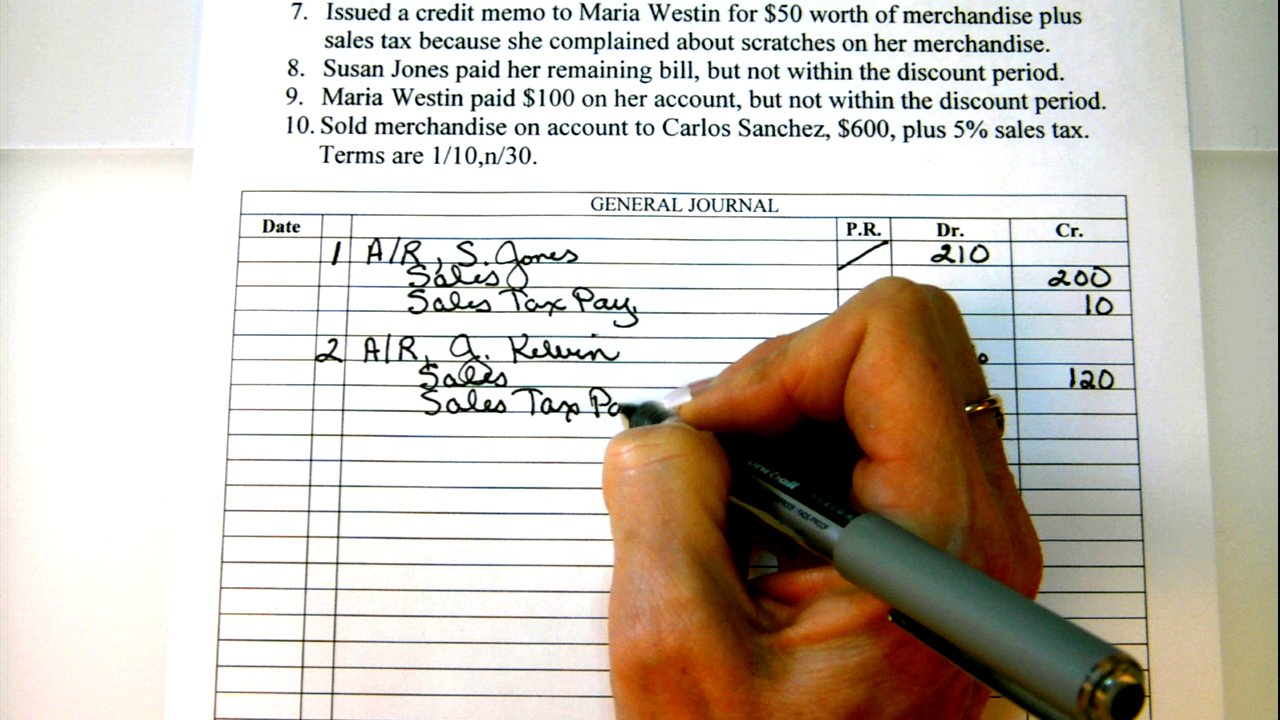 7. Issued a credit memo to Maria Westin for $50 worth of merchandise plus
sales tax because she complained about scratches on her merchandise.
8. Susan Jones paid her remaining bill, but not within the discount period.
9. Maria Westin paid $100 on her account, but not within the discount period.
10. Sold merchandise on account to Carlos Sanchez, $600, plus 5% sales tax.
Terms are 1/10,n/30.
GENERAL JOURNAL
Date P.R. Dr. Cr.
1 A/R, S. Jones 210
Sales 200
Sales Tax Pay. 10
2 A/R, J. Kelvin
Sales 120
Sales Tax Pa